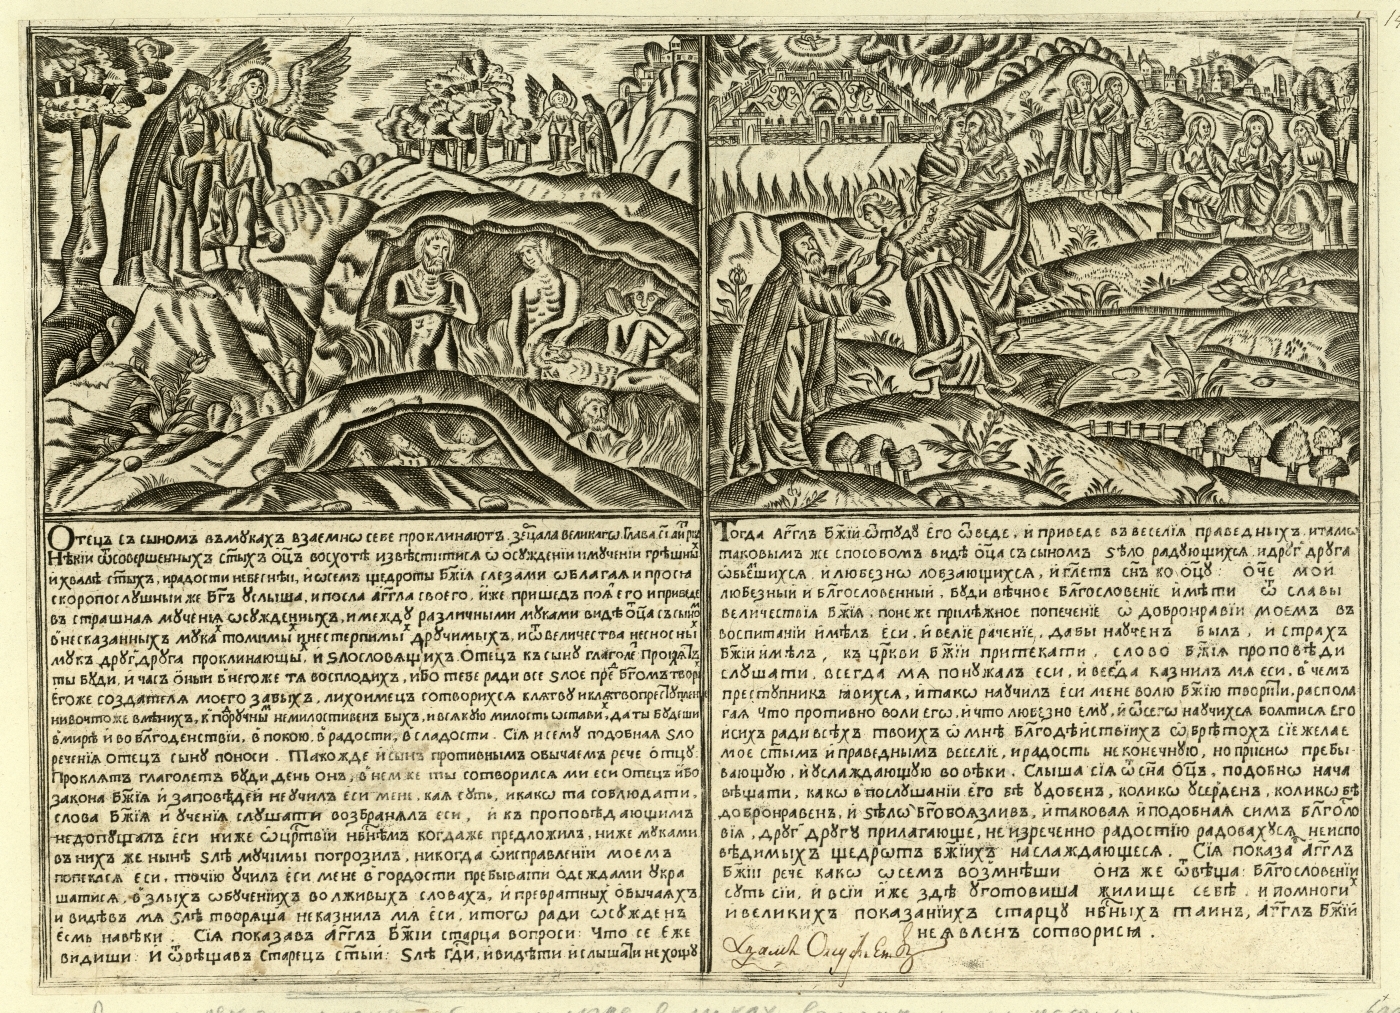 Отецъ съ сыномъ въ мукахъ взаемнѡ себе проклинаютъ, зе҆рцала великагѡ. Глава
Нѣкїи ѿ совершенныхъ ст҃ыхъ ѻц҃ъ восхотѣ извѣститися ѡ осужденїи и мученїи грѣшны
и҆ хвалѣ ст҃ыхъ, и радости небеснѣи, и ѡ всемъ щедроты Бж҃їѧ слезами ѡблагаѧ и просѧ
скоропослушныи же Бг҃ъ услыша, и посла Аг҃гла своего, и҆же пришедъ поѧ его и приведе
въ страшнаѧ мученїѧ ѡсужденныхъ, и между различными муками видѣ ѻ҆ц҃а съ сыно
в несказанныхъ мука толимы и нестерпимы дручимыхъ, и ѿ величества несносны
мукъ другъ друга проклинающы, и ѕлословѧщихъ. Отецъ къ сыну глаголе Проклѧтъ
ты буди, и часъ ѻныи в негоже тѧ восплодихъ, ибо тебе ради все ѕлое пре Бг҃омъ твори
Егоже создателѧ моего забыхъ, лихоимецъ сотворихсѧ клѧтву и клѧтвопре
ни во чтоже вмѣнихъ, к порручны немилостивенъ быхъ, и всѧкую милость ѡстави, да ты будеши
в мирѣ и во блг҃оденствїи, в покою, в радости, в сладости. Сїѧ и сему подобнаѧ ѕло
реченїѧ отецъ сыну поноси. Такожде и сынъ противнымъ обычаемъ рече отцу:
Проклѧтъ глаголетъ буди день онъ, в нем же ты сотворилсѧ ми еси отецъ ибо
закона Бж҃їѧ и҆ заповѣдей не училъ е҆си мене, каѧ суть, и како та соблюдати,
слова Бж҃їѧ и҆ ученїѧ слушати возбранѧлъ еси, и къ проповѣдающимъ
недопущалъ е҆си ниже ѡ црт҃вїи нб҃нѣмъ когдаже предложилъ, ниже муками
въ нихъ же нынѣ ѕлѣ мучимы погрозилъ, никогда ѡ исправленїи моемъ
попеклсѧ еси, точїю училъ е҆си мене в гордости пребывати одеждами укра
шатисѧ, в злыхъ ѡбученїихъ во лживыхъ словахъ, и превратныхъ обычаѧхъ
и видѣвъ мѧ ѕлѣ творѧща не казнилъ мѧ е҆си, и того ради ѡсужденъ
е҆смь навѣки. Сїѧ показавъ Аг҃глъ Бж҃їи старца вопроси: Что се еже
видиши: И ѿвѣщавъ старецъ ст҃ыи: Ѕлѣ гд҃и, и видѣти и слышати не хощу
Тогда Аг҃глъ Бж҃їй ѿтуду его ѿведе, и приведе въ веселїѧ праведныхъ, и тамѡ
таковымъ же способомъ видѣ ѻ҆ц҃а съ сыномъ ѕѣло радующихсѧ и другъ друга
ѡбьемшихсѧ, и любезнѡ лобзающихсѧ, и гл҃етъ сн҃ъ ко ѻ҆ц҃у: ѻ҆ч҃е мои
любезный и блг҃ословенный, буди вѣчное блг҃ословенїе имѣти ѿ славы
величествїѧ Бж҃їѧ, понеже прилѣжное попеченїе ѡ добронравїи моемъ въ
воспитанїи имѣлъ еси, и велїе раченїе, дабы наученъ былъ, и страхъ
Бж҃їи имѣлъ, къ цр҃кви Бж҃їи притекати, слово Бж҃їѧ проповѣди
слушати, всегда мѧ понужалъ еси, и всегда казнилъ мѧ еси, в чемъ
преступникъ ꙗвихсѧ, и такѡ научилъ еси мене волю Бж҃їю творити, распола
гаѧ что противно воли егѡ, и что любезно ему, и ѿ сегѡ научихсѧ боѧтисѧ его
и сихъ ради всѣхъ твоихъ ѡ мнѣ блг҃одѣйствїихъ ѡбрѣтохъ сїе желае
мое ст҃ымъ и праведнымъ веселїе, и радость не конечную, но приснѡ пребы-
вающую, и услаждающую во вѣки. Слыша сїѧ ѿ сн҃а ѻц҃ъ, подобнѡ нача
вѣщати, какѡ в послушанїи его бѣ удобенъ, коликѡ усерденъ, коликѡ бѣ
добронравенъ, и ѕѣлѡ бг҃обоѧзливъ, и таковаѧ и подобнаѧ симъ блг҃осло
вїѧ, другъ другу прилагающе, неизреченно радостїю радовахусѧ, неиспо
вѣдимыхъ щедротъ бж҃їихъ наслаждающесѧ. Сїѧ показа Аг҃глъ
Бж҃їи рече какѡ ѡ семъ возмнѣши онъ же ѿвѣща: блг҃ословенїи
суть сїи, и всїи и҆же здѣ уготовиша жилище себѣ. и по многи
и великихъ показанїихъ старцу нб҃ныхъ таинъ, Аг҃глъ Бж҃їй
неѧвленъ сотворисѧ.